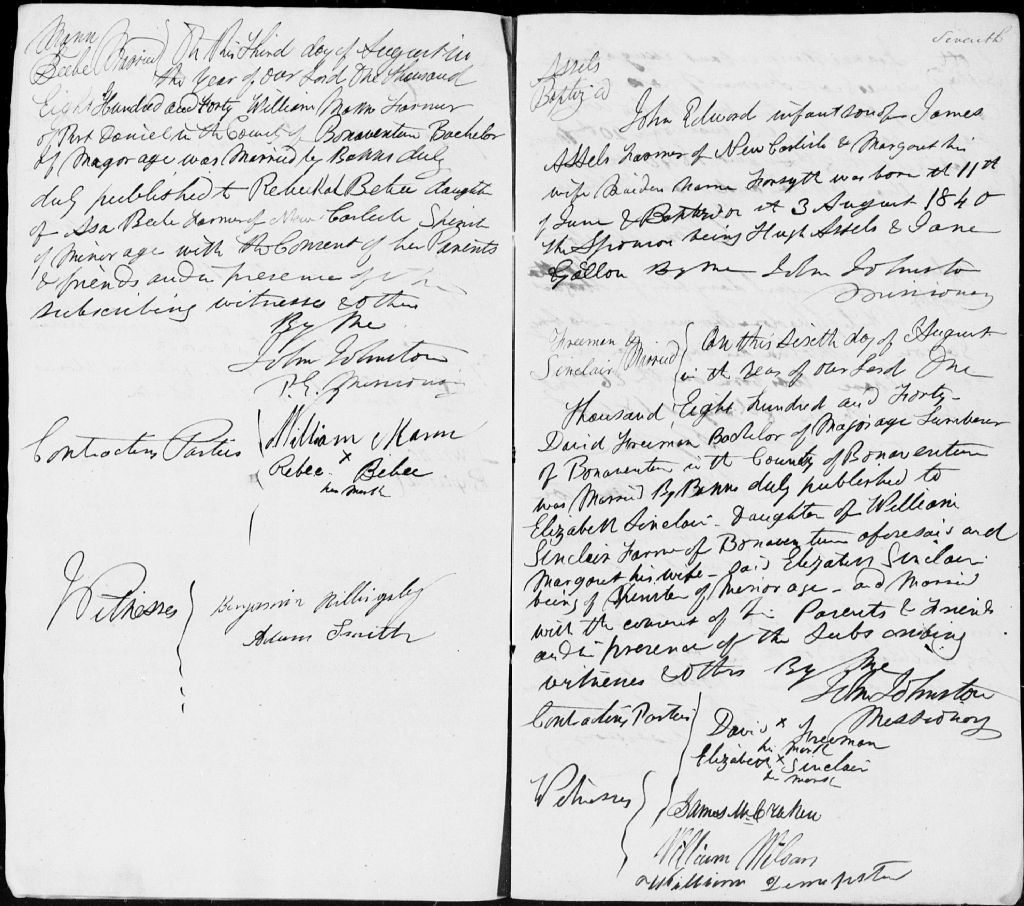 Mann
Beebe Married On this third day of August in
the Year of Our Lord One thousand
Eight Hundred and Forty William Mann Farmer
of Port Daniel in the County of Bonaventure Bachelor
of Magor age was Married by Banns duly
duly published to Rebeckah Bebee daughter
of Asa Bebe Farmer of New Carlisle Spinst
of minor age with the Consent of her Parents
& friends and in presence of
subscribing witnesses & others
By Me
John Johnston
P.E. Missionary
Contracting Parties William Mann
Rebec x Bebee
her mark
Witnesses
Benjamin Billingsley
Adam Smith
Seventh
Assels
Baptiz'd
John Edward infant son of James
Assels Farmer of New Carlisle & Margaret his
wife Maiden Name Forsyth was born the 11th
of June & Baptized on the 3 August 1840
the Sponsors being Hugh Assels & Jane
Gallon By Me John Johnston
Missionary
Freeman &
Sinclair Married On this Sixth day of August
in the Year of Our Lord One
thousand Eight hundred and Forty
David Freeman Bachelor of Major age Lumberer
of Bonaventure in the County of Bonaventure
was Married By Banns duly published to
Elizabeth Sinclair Daughter of William
Sinclair Farmer of Bonaventure aforesaid and
Margaret his wife - said Elizabeth Sinclair
being of Minor age - and Married
with the consent of Parents & Friends
and in presence of the Subscribing
witnesses & others By Me
John Johnston
Missionary
Contracting Parties
David x Freeman
his mark
Elizabeth x Sinclair
her mark
Witnesses
James McCraken
William Wilson
William Dempster